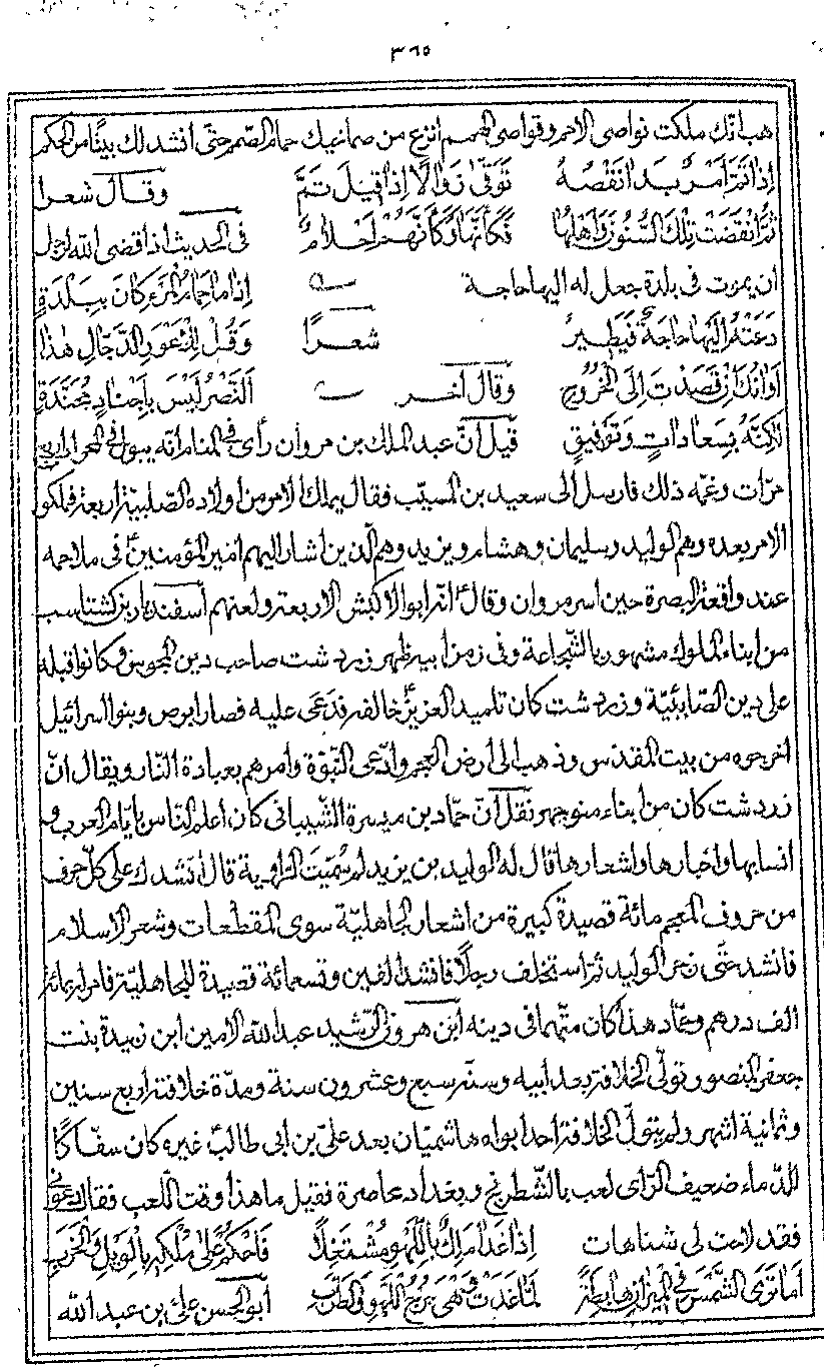 ٣٦٥
هب انّك ملكت نواصى الامم وقواصى الهمم انزع من صماخيك حمام الصمم حتّى انشد لك بيتًا من الحكم
اِذَا تَمَّ اَمْرٌ بَدَا نَقْصُهُ تَوَقَّ زَوَالًا اِذَا قِيلَ تَمَّ وقال شعرا
ثُمَّ انْقَضَتْ تِلْكَ السُّنُونُ وَاَهْلُهَا فَكَأَنَّهَا وَكَأَنَّهُمْ اَحْلَامُ فى الحديث اذا قضى الله لرجل
ان يموت فى بلدة جعل له اليها حاجة اِذَا مَا حِمَامُ الْمَرْءِ كَانَ بِبَلْدَةٍ
دَعَتْهُ اِلَيْهَا حَاجَةٌ فَيَطِيرُ شعرًا وَقُلْ لِلْاَعْوَرِ الدَّجَّالِ هٰذَا
اَوَانُكَ اِنْ قَصَدْتَ اِلَى الْخُرُوجِ وقال آخر اَلنَّصْرُ لَيْسَ بِاَجْنَادٍ مُجَنَّدَةٍ
لٰكِنَّهُ بِسَعَادَاتٍ وَتَوْفِيقٍ قيل انّ عبد الملك بن مروان رأى فى المنام انّه يبول فى المحراب اربع
مرّات وغمّه ذلك فارسل الى سعيد بن المسيّب فقال يملك الامر من اولاده الصّلبيّة اربعة فملكوا
الامر بعده وهم الوليد وسليمان وهشام ويزيد وهم الّذين اشار اليهم امير المؤمنينؑ فى ملاحمه
عند واقعة البصرة حين اسر مروان وقالؑ انّه ابو الاكبش الاربعة ولعنهم اسفنديار بن كشتاسب
من ابناء الملوك مشهور بالشّجاعة وفى زمن ابيه ظهر زردشت صاحب دين المجوس وكانوا قبله
على دين الصّابئيّة وزردشت كان تلميذ العزيرؑ خالفه فدعى عليه فصار ابرص وبنوا اسرائيل
اخرجوه من بيت المقدّس وذهب الى ارض العجم وادّعى النّبوّة وامرهم بعبادة النّار ويقال انّ
زردشت كان من ابناء منوجهر نقل انّ حمّاد بن ميسرة الشّيبانى كان اعلم النّاس بايّام العرب و
انسابها واخبارها واشعارها قال له الوليد بن يزيد لم سُمّيتَ الرّاوية قال انشدك على كلّ حرف
من حروف المعجم مائة قصيدة كبيرة من اشعار الجاهليّة سوى المقطعات وشعر الاسلام
فانشد حتّى ضجر الوليد ثمّ استخلف رجلًا فانشد الفين وتسعمائة قصيدة للجاهليّة فامر له بمائة
الف درهم وحمّاد هذا كان متّهما فى دينه ابن هرون الرّشيد عبد الله الامين ابن زبيدة بنت
جعفر المنصور وتولّى الخلافة بعد ابيه وسنّه سبع وعشرون سنة ومدّة خلافته اربع سنين
وثمانية اشهر ولم يتولّ الخلافة احد ابواه هاشميّان بعد علىّ بن ابى طالبؑ غيره كان سفّاكًا
للدّماء ضعيف الرّاى لعب بالشّطرنج وبغداد محاصرة فقيل ما هذا وقت اللّعب فقال دعونى
فقد لاحت لى شاهات اِذَا غَدَا مَلِكٌ بِاللَّهْوِ مُشْتَغِلًا فَاحْكُمْ عَلٰى مُلْكِهِ بِالْوَيْلِ وَالْخَرَبِ
اَمَا تَرَى الشَّمْسَ فِى الْمِيزَانِ هَابِطَةً لَمَّا غَدَتْ وَهْىَ بُرْجُ اللَّهْوِ وَالطَّرَبِ ابو الحسن علىّ بن عبد الله